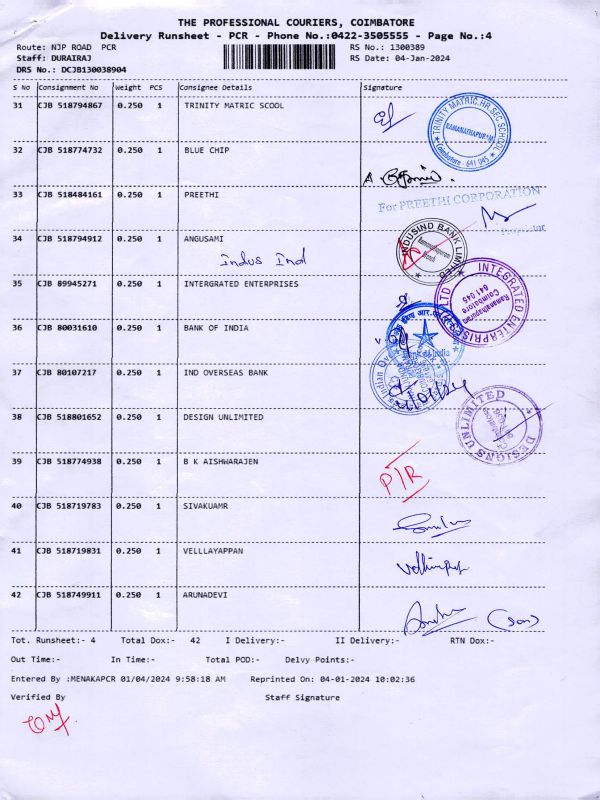 THE PROFESSIONAL COURIERS, COIMBATORE
Delivery Runsheet - PCR - Phone No.:0422-3505555 - Page No.:4
Route: NJP ROAD PCR RS No.: 1300389
Staff: DURAIRAJ RS Date: 04-Jan-2024
DRS No.: DCJB130038904
S No Consignment No Weight PCS Consignee Details Signature
31 CJB 518794867 0.250 1 TRINITY MATRIC SCOOL
TRINITY MATRIC.HR.SEC.SCHOOL
RAMANATHAPURAM
Coimbatore - 641 045
32 CJB 518774732 0.250 1 BLUE CHIP
33 CJB 518484161 0.250 1 PREETHI
For PREETHI CORPORATION
Proprietor
34 CJB 518794912 0.250 1 ANGUSAMI
Indus Ind
INDUSIND BANK LIMITED
35 CJB 89945271 0.250 1 INTERGRATED ENTERPRISES
INTEGRATED ENTERPRISES
LTD
Ramanathapuram
Coimbatore
641 045
36 CJB 80031610 0.250 1 BANK OF INDIA
37 CJB 80107217 0.250 1 IND OVERSEAS BANK
38 CJB 518801652 0.250 1 DESIGN UNLIMITED
DESIGNS UNLIMITED
39 CJB 518774938 0.250 1 B K AISHWARAJEN
P/R
40 CJB 518719783 0.250 1 SIVAKUAMR
41 CJB 518719831 0.250 1 VELLLAYAPPAN
42 CJB 518749911 0.250 1 ARUNADEVI
(son)
Tot. Runsheet:- 4 Total Dox:- 42 I Delivery:- II Delivery:- RTN Dox:-
Out Time:- In Time:- Total POD:- Delvy Points:-
Entered By :MENAKAPCR 01/04/2024 9:58:18 AM Reprinted On: 04-01-2024 10:02:36
Verified By Staff Signature